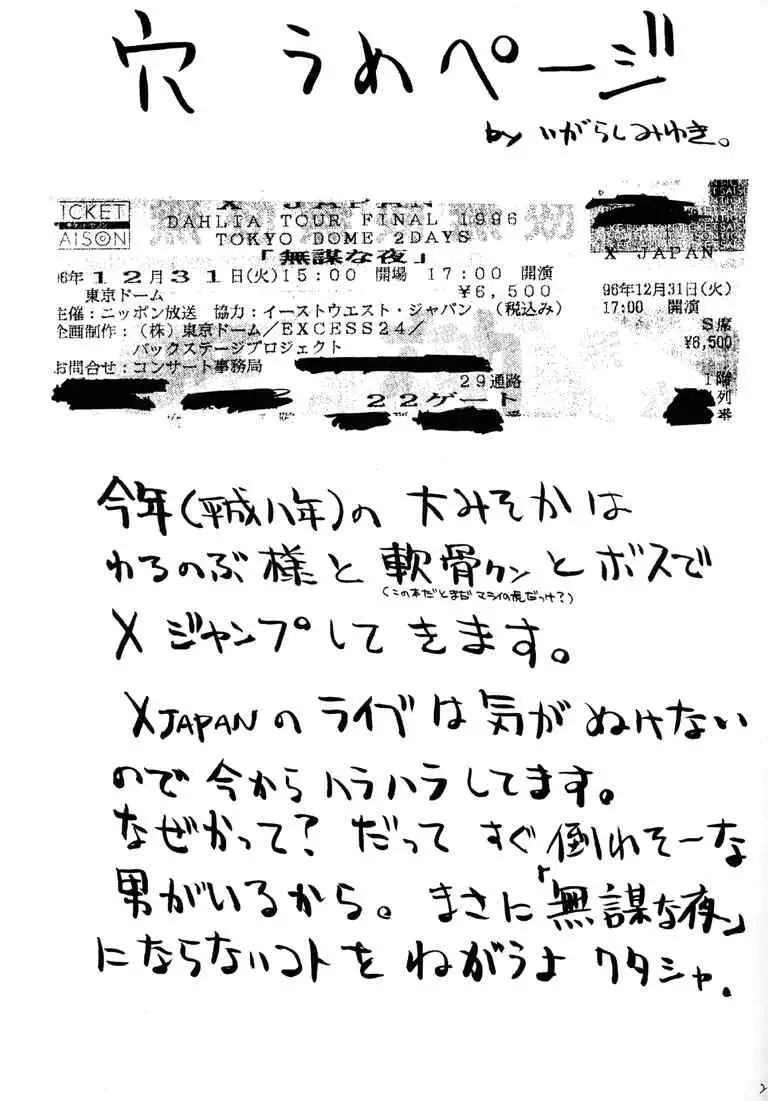 穴 うめページ
by いがらしみゆき。
TICKET
SAISON
X JAPAN
DAHLIA TOUR FINAL 1996
TOKYO DOME 2DAYS
「無謀な夜」
96年12月31日(火)15:00 開場 17:00 開演
東京ドーム ¥6,500
主催:ニッポン放送 協力:イーストウエスト・ジャパン (税込み)
企画制作:(株)東京ドーム/EXCESS24/
バックステージプロジェクト
お問合せ:コンサート事務局
29通路
22ゲート
X JAPAN
96年12月31日(火)
17:00 開演
S席
¥6,500
1階
列
番
今年(平成八年)の 大みそかは
わるのぶ様と 軟骨クンと ボスで
(この本だとまだ マライの虎だっけ?)
X ジャンプして きます。
X JAPANの ライブは 気が ぬけない
ので 今から ハラハラしてます。
なぜかって? だって すぐ 倒れそーな
男がいるから。 まさに 「無謀な夜」
にならないコトを ねがうよ ワタシャ.